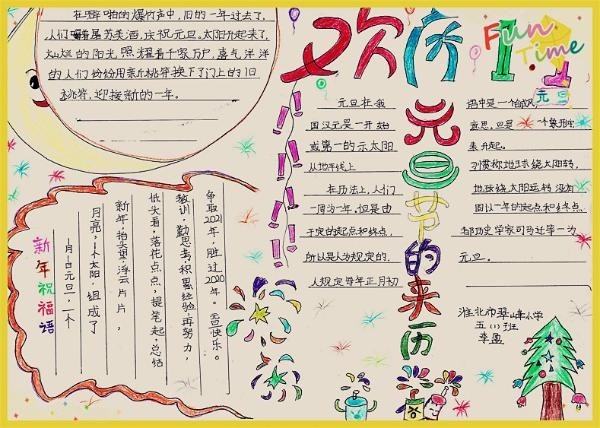 在噼啪的爆竹声中，旧的一年过去了，
人们喝着屠苏美酒，庆祝元旦。太阳升起来了，
灿烂的阳光照耀着千家万户，喜气洋洋
的人们纷纷用新桃符换下了门上的旧
桃符，迎接新的一年。
欢庆
Fun
Time
元旦
元旦节的来历
元旦在我
国汉元是一开始
或第一的示太阳
从地平线上
在历法上，人们
一周为一年，但是由
于定的起点和终点，
所以是人为规定的，
人规定每年正月初
意思，但是一个象形
来升起。
习惯称地球绕太阳转，
地球绕太阳运转没有
固认一年的起点和终点，
元旦。
新年祝福语
一月一日元旦，一个
月亮，一个太阳，组成了
新年，抬头望，浮云片片，
低头看，落花点点，提笔起，总结
教训，勤思考，积累经验，再努力，
争取2021年，胜过2020年。元旦快乐。
淮北市翠峰小学
五(1)班